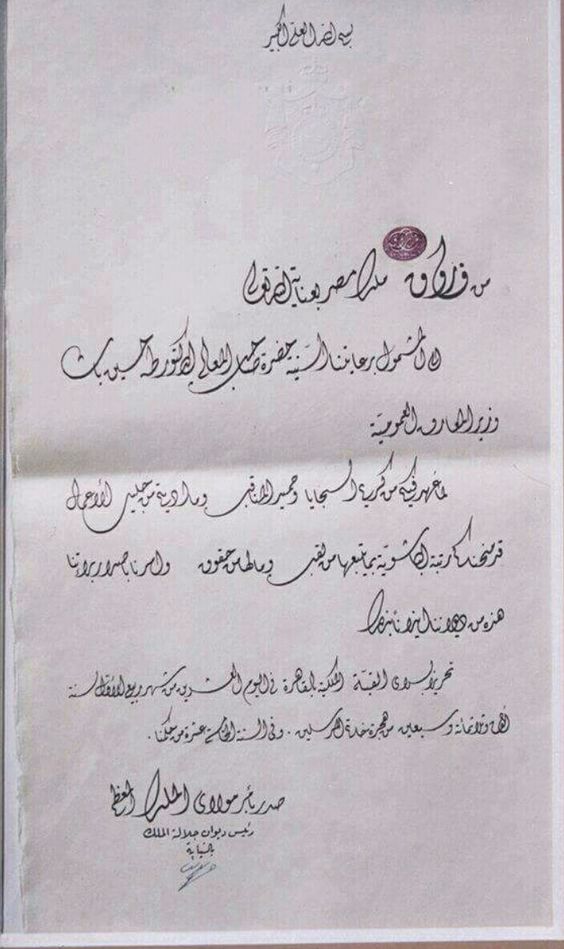 بسم الله العلي الكبير
من فاروق ملك مصر بعناية الله تعالى
الى المشمول برعايتنا السنية حضرة صاحب المعالي الدكتور طه حسين باشا
وزير المعارف العمومية
لما ظهر فيكم من كريم السجايا وحميد المناقب وما أديتم من جليل الأعمال
قد منحناكم رتبة الباشوية بما يتبعها من لقب وما لها من حقوق وأمرنا باصدار براءتنا
هذه من ديواننا ايذانا بذلك
تحريرا بسراى القبة الملكية بالقاهرة فى اليوم العشرين من شهر ربيع الأول سنة
ألف وثلثمائة وسبعين من هجرة خاتم المرسلين . وفى السنة الخامسة عشرة من حكمنا .
صدر بأمر مولاي الملك المعظم
رئيس ديوان جلالة الملك
بالنيابة